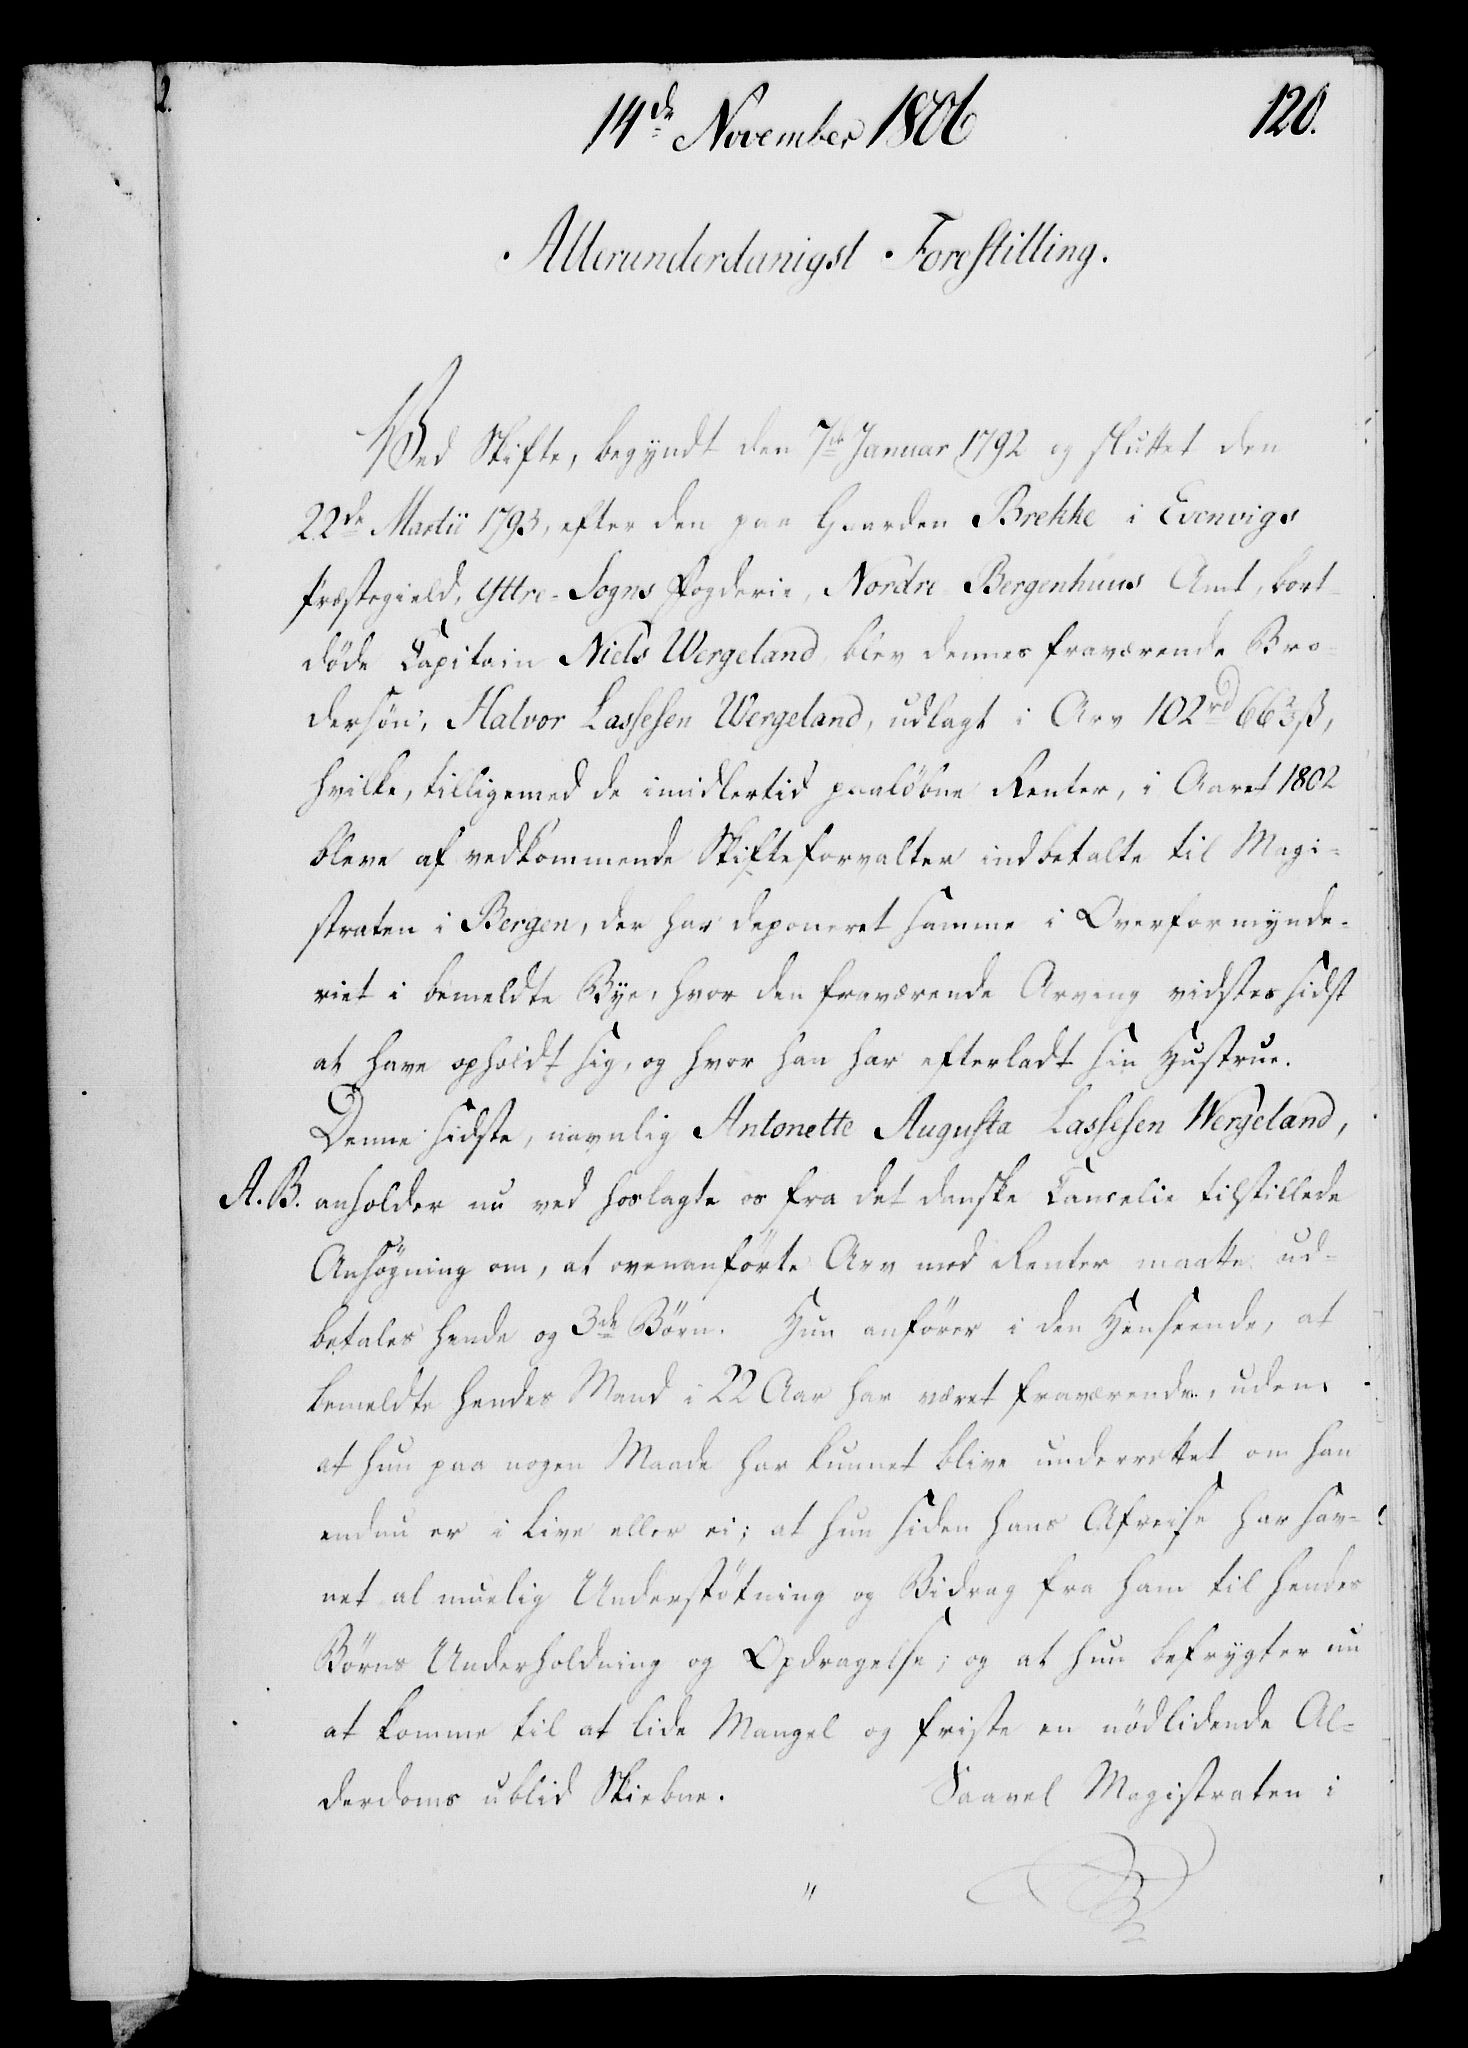 2.
14de November 1806
120.
Allerunderdanigst Forestilling.
Ved Skifte, begyndt den 7de Januar 1792 og sluttet den
22de Martii 1793, efter den paa Gaarden Brekke i Evenvigs
Præstegield, Yttre-Sogns Fogderie, Nordre Bergenhuus Amt, bort-
døde Capitain Niels Wergeland, blev dennes fraværende Bro-
dersøn, Halvor Lassesen Wergeland, udlagt i Arv 102rd 66 3/3 ß,
hvilke, tilligemed de imidlertid paaløbne Renter, i Aaret 1802
bleve af vedkommende Skifteforvalter indbetalte til Magi-
straten i Bergen, der har deponeret samme i Overformynde-
riet i bemeldte Bye, hvor den fraværende Arving vidstes sidst
at have opholdt sig, og hvor han har efterladt sin Hustrue.
Denne sidste, navnlig Antonette Augusta Lassesen Wergeland,
A. B. anholder nu ved hoslagte os fra det danske Cancelie tilstillede
Ansøgning om, at ovenanførte Arv med Renter maatte ud-
betales hende og 3de Børn. Hun anfører i den Henseende, at
bemeldte hendes Mand i 22 Aar har været fraværende, uden
at hun paa nogen Maade har kunnet blive underrettet om han
endnu er i Live eller ei; at hun siden hans Afreise har sav-
net al muelig Understøtning og Bidrag fra ham til hendes
Børns Underholdning og Opdragelse; og at hun befrygter nu
at komme til at lide Mangel og friste en nødlidende Al-
derdoms ublid Skiebne. Saavel Magistraten i
"